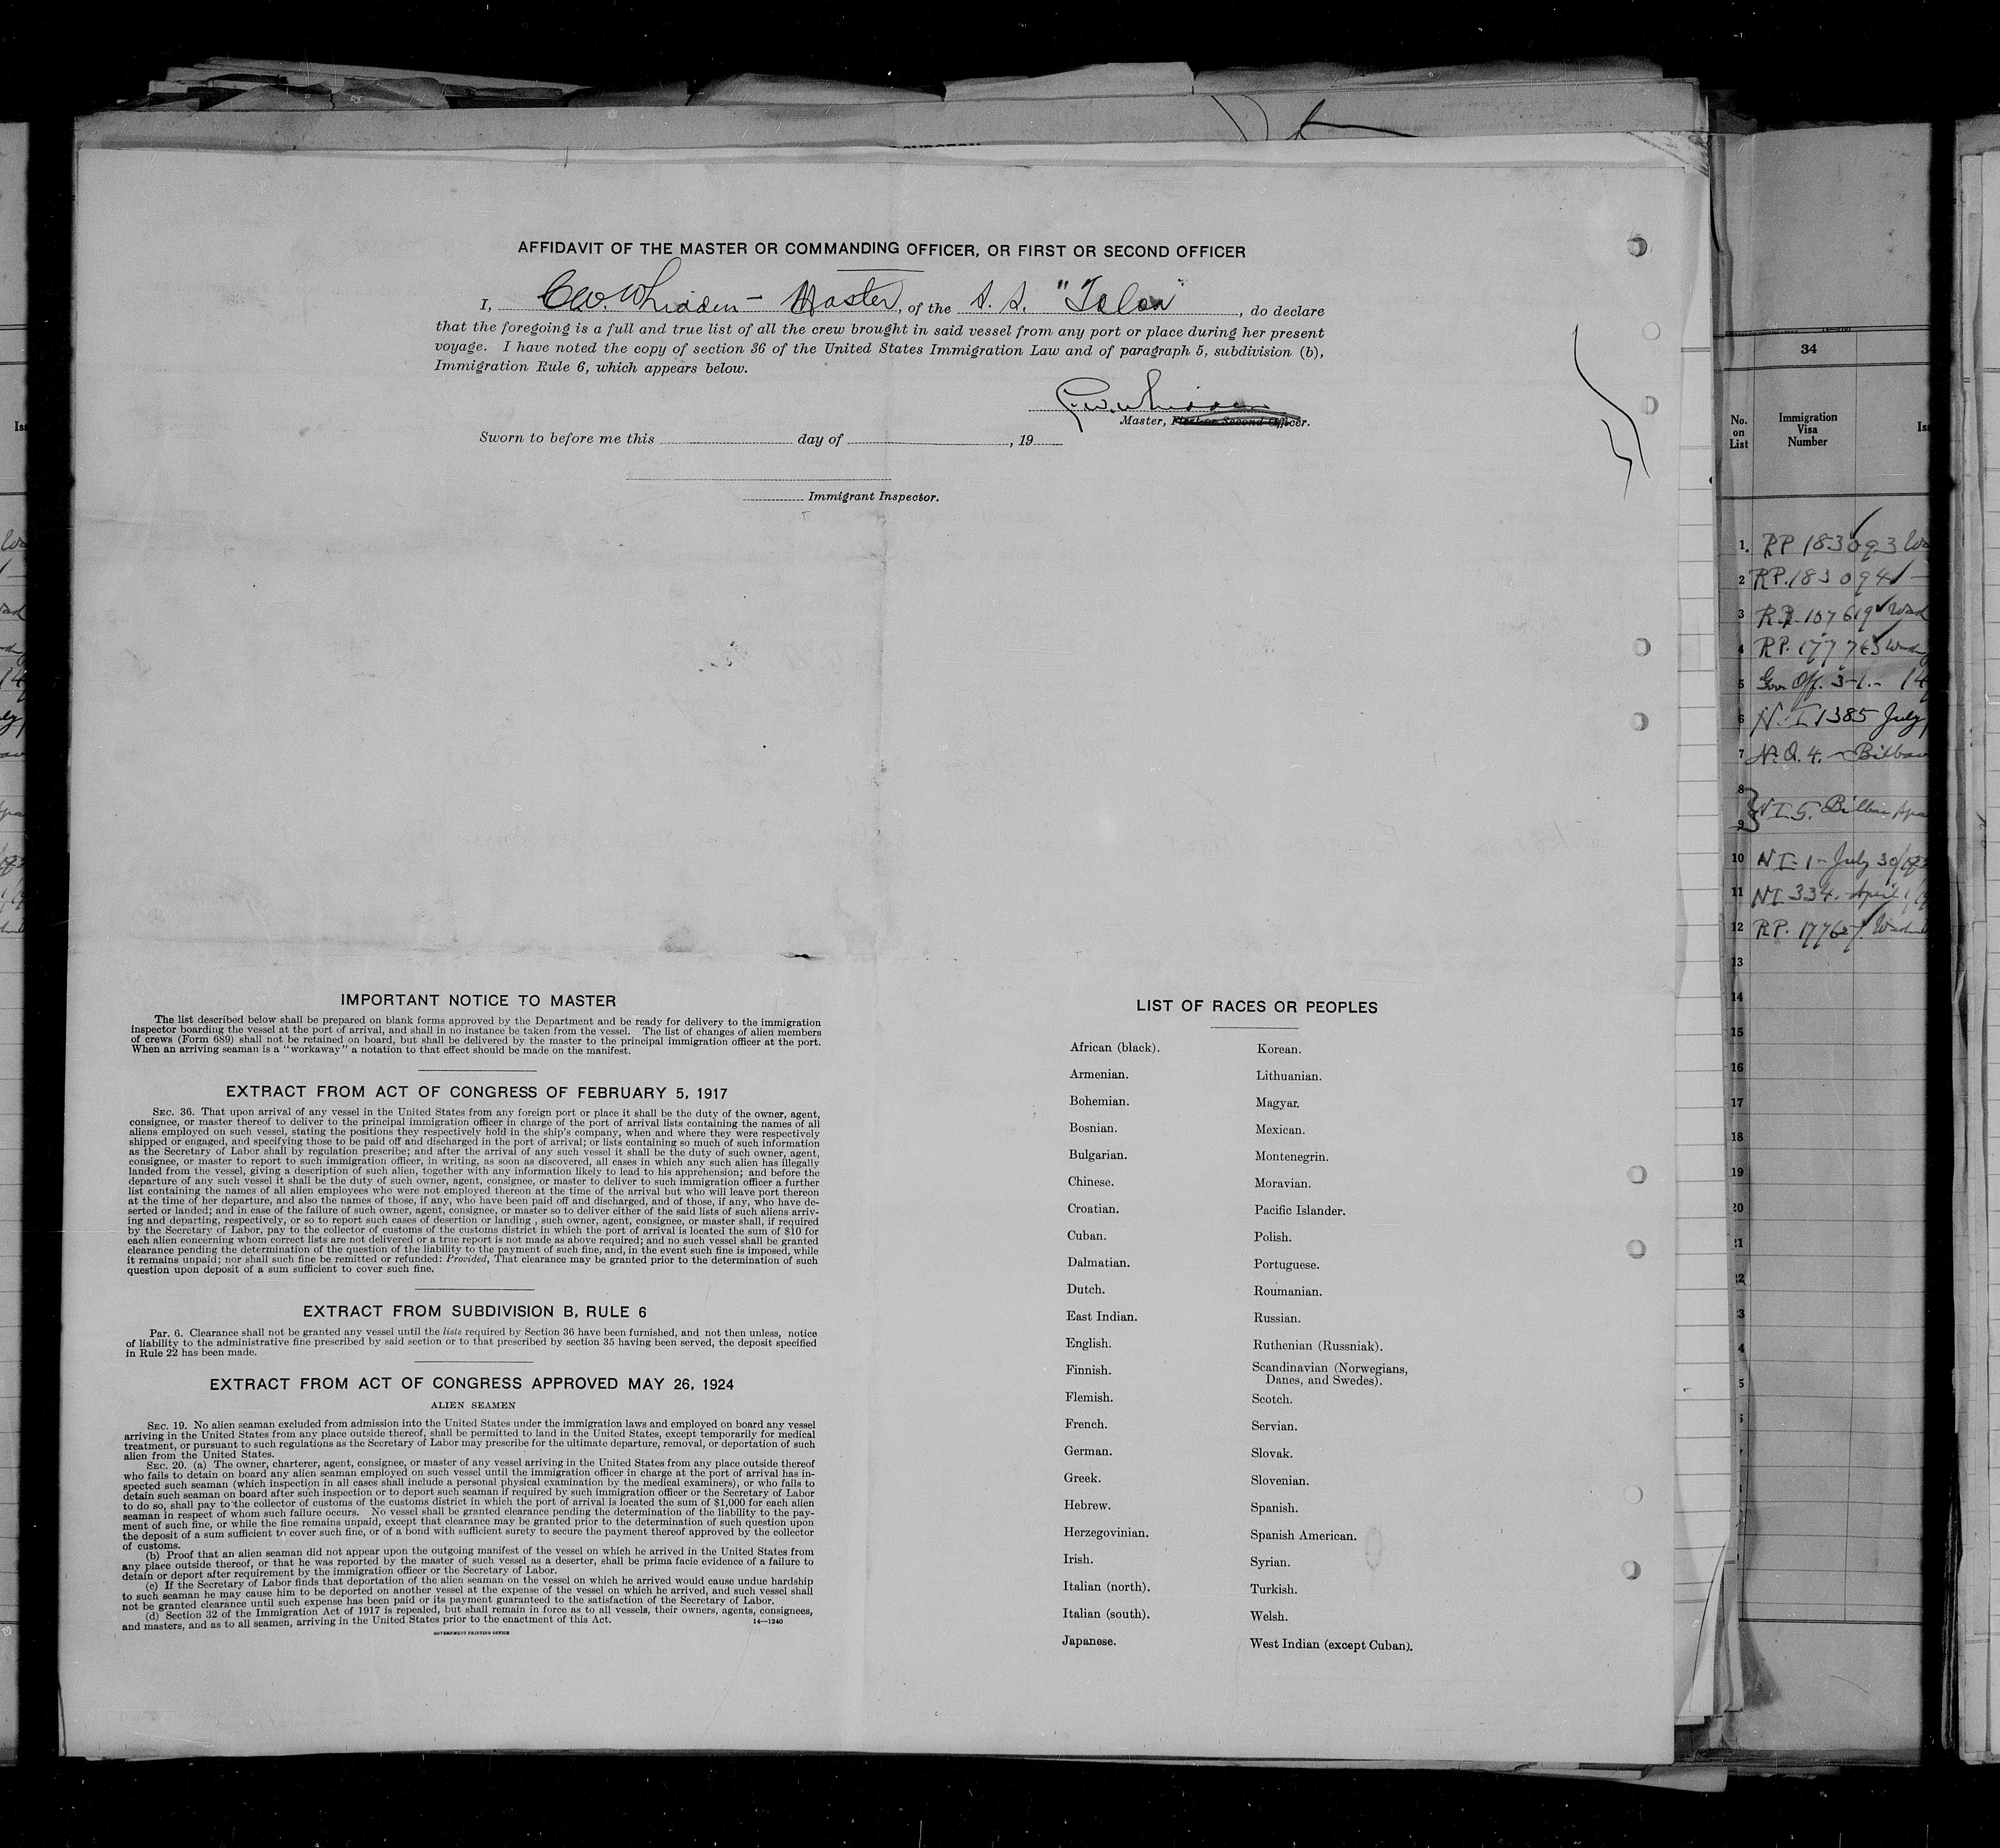 AFFIDAVIT OF THE MASTER OR COMMANDING OFFICER, OR FIRST OR SECOND OFFICER
I, C.W. Whidden – Master, of the S. S. "Toloa", do declare
that the foregoing is a full and true list of all the crew brought in said vessel from any port or place during her present
voyage. I have noted the copy of section 36 of the United States Immigration Law and of paragraph 5, subdivision (b),
Immigration Rule 6, which appears below.
C.W. Whidden
Master, First or Second Officer.
Sworn to before me this day of , 19
Immigrant Inspector.
IMPORTANT NOTICE TO MASTER
The list described below shall be prepared on blank forms approved by the Department and be ready for delivery to the immigration
inspector boarding the vessel at the port of arrival, and shall in no instance be taken from the vessel. The list of changes of alien members
of crews (Form 689) shall not be retained on board, but shall be delivered by the master to the principal immigration officer at the port.
When an arriving seaman is a "workaway" a notation to that effect should be made on the manifest.
EXTRACT FROM ACT OF CONGRESS OF FEBRUARY 5, 1917
SEC. 36. That upon arrival of any vessel in the United States from any foreign port or place it shall be the duty of the owner, agent,
consignee, or master thereof to deliver to the principal immigration officer in charge of the port of arrival lists containing the names of all
aliens employed on such vessel, stating the positions they respectively hold in the ship's company, when and where they were respectively
shipped or engaged, and specifying those to be paid off and discharged in the port of arrival; or lists containing so much of such information
as the Secretary of Labor shall by regulation prescribe; and after the arrival of any such vessel it shall be the duty of such owner, agent,
consignee, or master to report to such immigration officer, in writing, as soon as discovered, all cases in which any such alien has illegally
landed from the vessel, giving a description of such alien, together with any information likely to lead to his apprehension; and before the
departure of any such vessel it shall be the duty of such owner, agent, consignee, or master to deliver to such immigration officer a further
list containing the names of all alien employees who were not employed thereon at the time of the arrival but who will leave port thereon
at the time of her departure, and also the names of those, if any, who have been paid off and discharged, and of those, if any, who have de-
serted or landed; and in case of the failure of such owner, agent, consignee, or master so to deliver either of the said lists of such aliens arriv-
ing and departing, respectively, or so to report such cases of desertion or landing , such owner, agent, consignee, or master shall, if required
by the Secretary of Labor, pay to the collector of customs of the customs district in which the port of arrival is located the sum of $10 for
each alien concerning whom correct lists are not delivered or a true report is not made as above required; and no such vessel shall be granted
clearance pending the determination of the question of the liability to the payment of such fine, and, in the event such fine is imposed, while
it remains unpaid; nor shall such fine be remitted or refunded: Provided, That clearance may be granted prior to the determination of such
question upon deposit of a sum sufficient to cover such fine.
EXTRACT FROM SUBDIVISION B, RULE 6
Par. 6. Clearance shall not be granted any vessel until the lists required by Section 36 have been furnished, and not then unless, notice
of liability to the administrative fine prescribed by said section or to that prescribed by section 35 having been served, the deposit specified
in Rule 22 has been made.
EXTRACT FROM ACT OF CONGRESS APPROVED MAY 26, 1924
ALIEN SEAMEN
SEC. 19. No alien seaman excluded from admission into the United States under the immigration laws and employed on board any vessel
arriving in the United States from any place outside thereof, shall be permitted to land in the United States, except temporarily for medical
treatment, or pursuant to such regulations as the Secretary of Labor may prescribe for the ultimate departure, removal, or deportation of such
alien from the United States.
SEC. 20. (a) The owner, charterer, agent, consignee, or master of any vessel arriving in the United States from any place outside thereof
who fails to detain on board any alien seaman employed on such vessel until the immigration officer in charge at the port of arrival has in-
spected such seaman (which inspection in all cases shall include a personal physical examination by the medical examiners), or who fails to
detain such seaman on board after such inspection or to deport such seaman if required by such immigration officer or the Secretary of Labor
to do so, shall pay to the collector of customs of the customs district in which the port of arrival is located the sum of $1,000 for each alien
seaman in respect of whom such failure occurs. No vessel shall be granted clearance pending the determination of the liability to the pay-
ment of such fine, or while the fine remains unpaid, except that clearance may be granted prior to the determination of such question upon
the deposit of a sum sufficient to cover such fine, or of a bond with sufficient surety to secure the payment thereof approved by the collector
of customs.
(b) Proof that an alien seaman did not appear upon the outgoing manifest of the vessel on which he arrived in the United States from
any place outside thereof, or that he was reported by the master of such vessel as a deserter, shall be prima facie evidence of a failure to
detain or deport after requirement by the immigration officer or the Secretary of Labor.
(c) If the Secretary of Labor finds that deportation of the alien seaman on the vessel on which he arrived would cause undue hardship
to such seaman he may cause him to be deported on another vessel at the expense of the vessel on which he arrived, and such vessel shall
not be granted clearance until such expense has been paid or its payment guaranteed to the satisfaction of the Secretary of Labor.
(d) Section 32 of the Immigration Act of 1917 is repealed, but shall remain in force as to all vessels, their owners, agents, consignees,
and masters, and as to all seamen, arriving in the United States prior to the enactment of this Act.
14—1240
GOVERNMENT PRINTING OFFICE
LIST OF RACES OR PEOPLES
African (black). Korean.
Armenian. Lithuanian.
Bohemian. Magyar.
Bosnian. Mexican.
Bulgarian. Montenegrin.
Chinese. Moravian.
Croatian. Pacific Islander.
Cuban. Polish.
Dalmatian. Portuguese.
Dutch. Roumanian.
East Indian. Russian.
English. Ruthenian (Russniak).
Finnish. Scandinavian (Norwegians,
Danes, and Swedes).
Flemish. Scotch.
French. Servian.
German. Slovak.
Greek. Slovenian.
Hebrew. Spanish.
Herzegovinian. Spanish American.
Irish. Syrian.
Italian (north). Turkish.
Italian (south). Welsh.
Japanese. West Indian (except Cuban).
34
No.
on
List
Immigration
Visa
Number
1. RP 183093
2 RP. 183094
3 RP. 107619
4 RP.
5 Gov Off. 3-1.- 14
6 N.I 1385 July
7 4. – Bilbao
8
9 NI 5. Bilbao
10 NI-1- July 30
11 NI 334. April 1
12 RP.
13
14
15
16
17
18
19
20